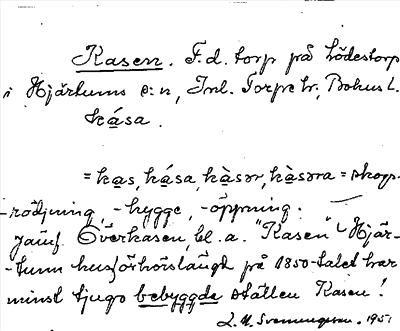 Kasen. F.d. torp på Lödestorp
i Hjärtums s:n, Inl. Torpe hr, Bohus l.
kása.
= kas, kása, kàsər, kàsəra = skogs-
-rödjning, -hygge, -öppning.
Jämf. Överkasen, bl. a. "Kasen" Hjär-
-tum husförhörslängd på 1850-talet har
minst tjugo bebyggda ställen Kasen!
1951